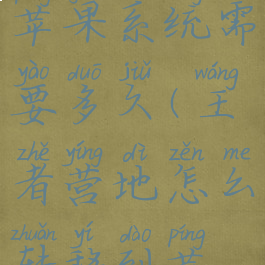 苹果系统需
yào duō jiǔ wáng
要多久(王
zhě yíng dì zěn me
者营地怎么
zhuǎn yí dào píng
转移到苹